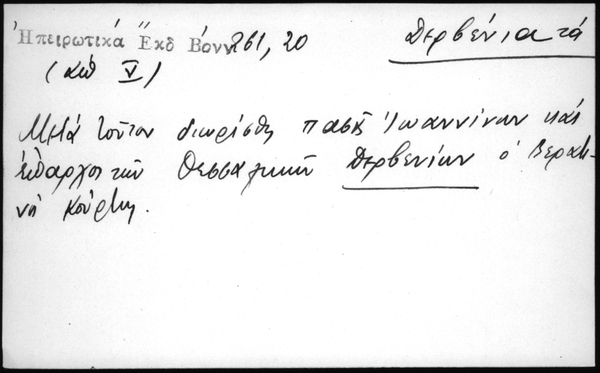 Ἠπειρωτικά Ἔκδ Βόνν. 261, 20 Δερβένια τά
(κεφ V)
Μετά τοῦτον διωρίσθη πασᾶς Ἰωαννίνων καί
ἔπαρχος τῶν Θεσσαλικῶν Δερβενίων ὁ Βερατι-
νός Κούρτης.